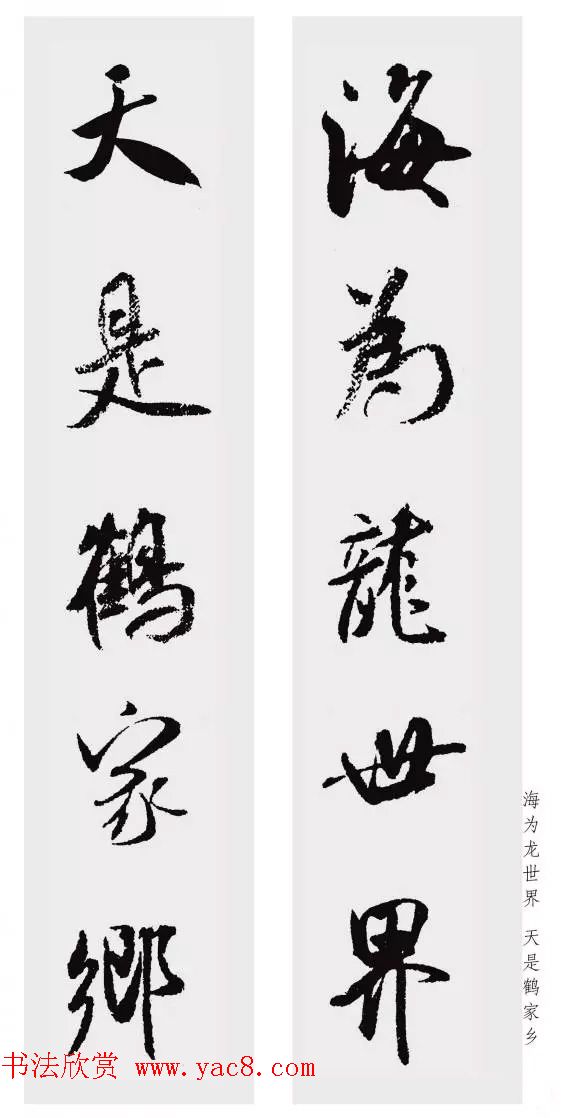 海為龍世界
天是鶴家鄉
海为龙世界 天是鹤家乡
书法欣赏 www.yac8.com